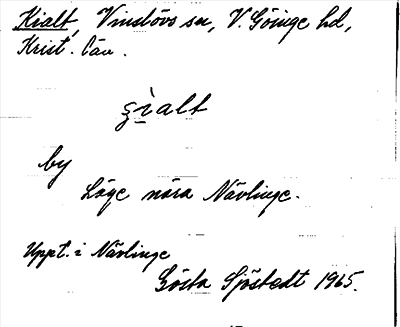 Kialt, Vinslövs sn, V. Göinge hd,
Krist. län.
ʂìalt
by
Läge nära Nävlinge.
Uppt. i Nävlinge
Gösta Sjöstedt 1965.